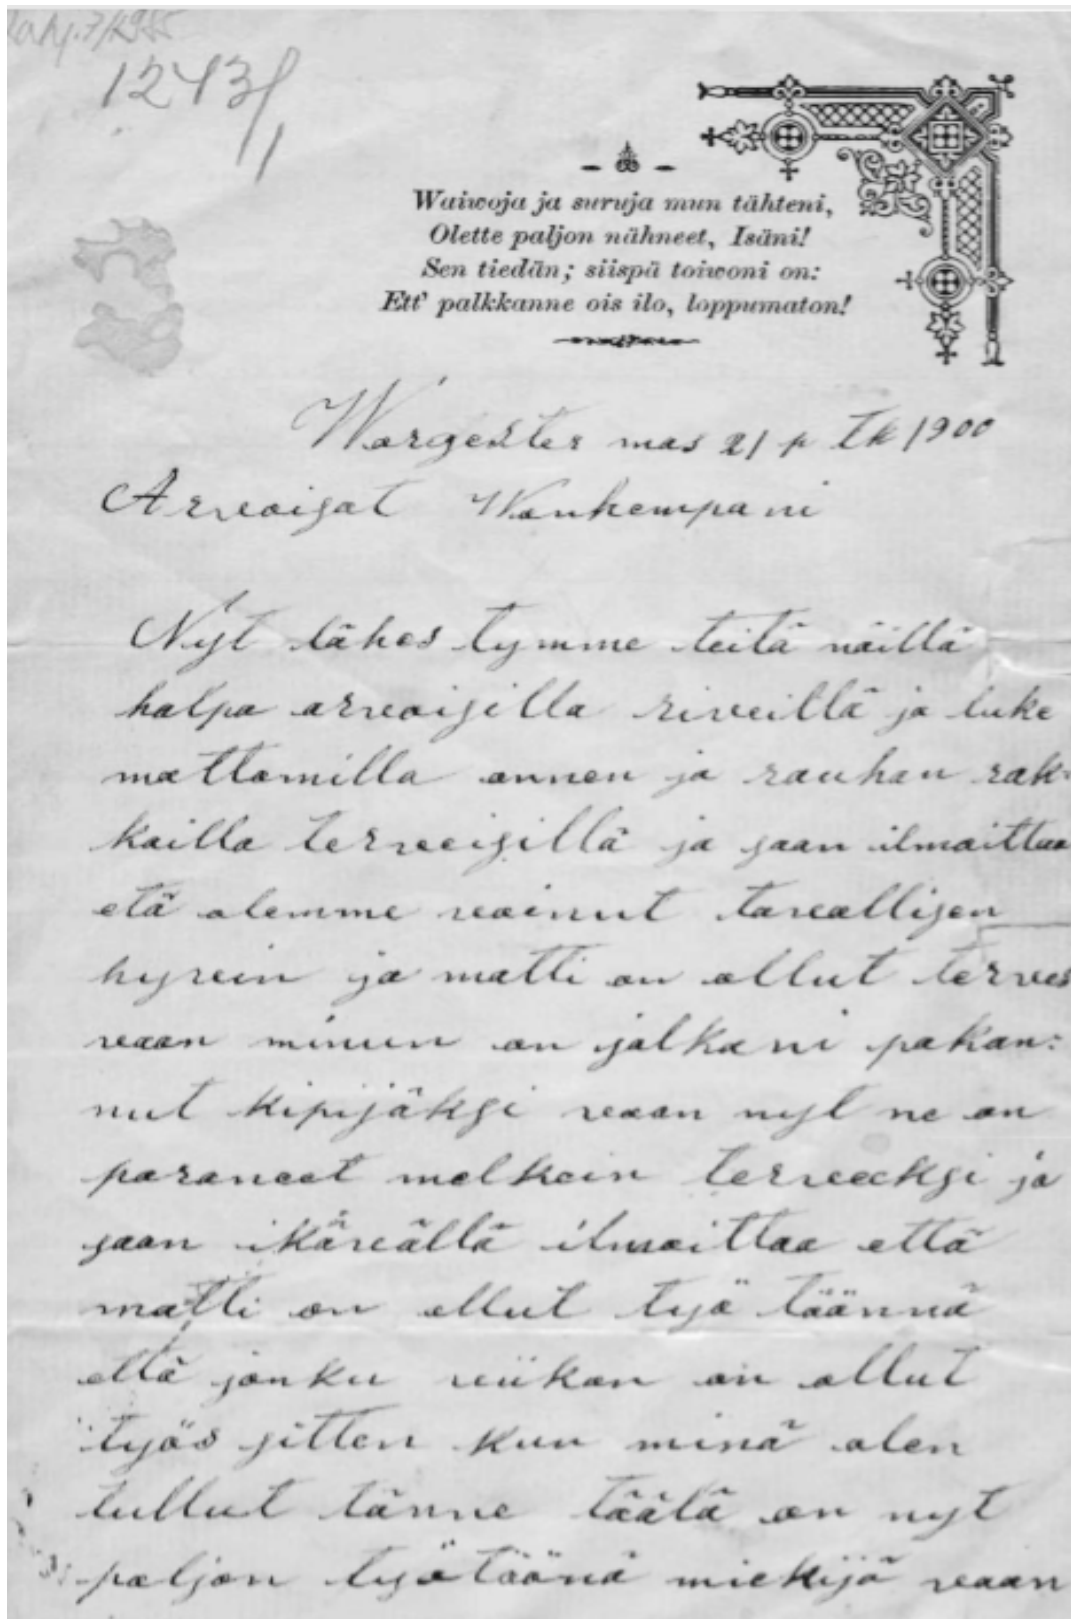 1243/1
Waiwoja ja suruja mun tähteni,
Olette paljon nähneet, Isäni!
Sen tiedän; siispä toiwoni on:
Ett' palkkanne ois ilo, loppumaton!
Worgester mas 21 p Tk 1900
Arvoisat Wanhempani
Nyt lähes tymme teitä näillä
halpa arvoisilla riveillä ja luke
mattomilla annon ja rauhan rak-
kailla terveisillä ja saan ilmoittaa
etä olemme voinut tavallisen
hyvin ja matti on ollut terves
vaan minun on jalkani pakan:
nut kipijäksi vaan nyt ne on
paraneet melkein terveeksi ja
saan ikävällä ilmoittaa että
matti on ollut työ täännä
että jonku viikon on ollut
työs sitten kun minä olen
tullut tänne täälä on nyt
paljon työtäänä miekijä vaan